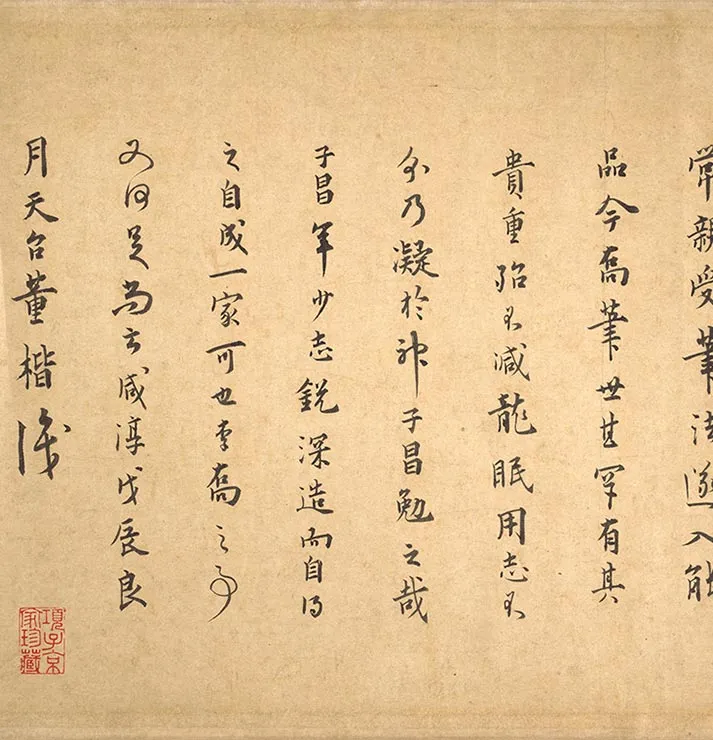 親受筆法遂入能
品今喬筆世甚罕有其
貴重殆不減龍眠用志不
分乃凝於神子昌勉之哉
子昌年少志銳深造而自得
之自成一家可也李喬之事
又何足尚云咸淳戊辰良
月天台董楷識
項子京家珍藏